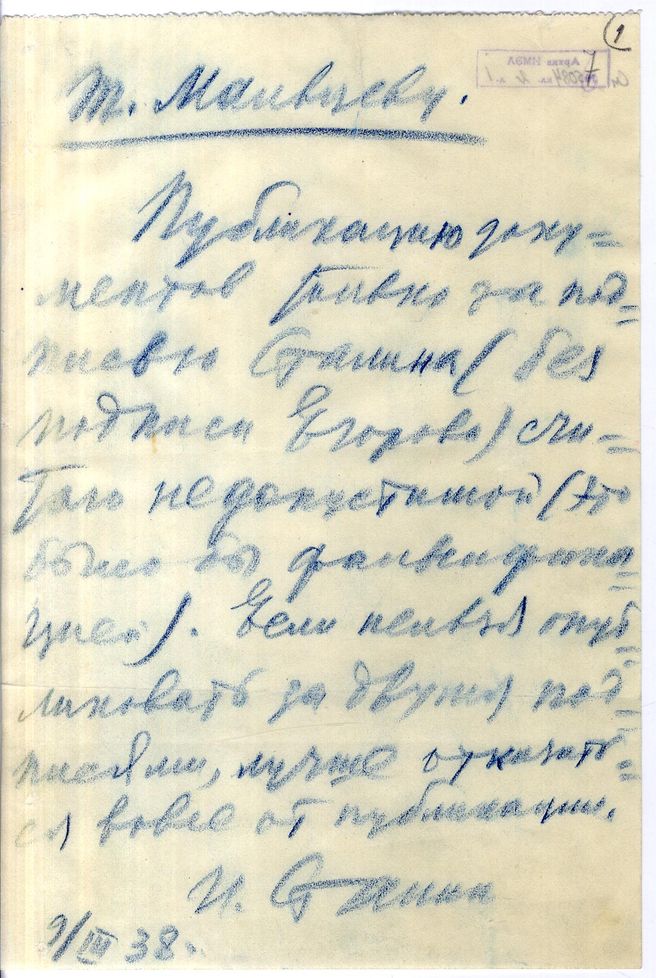 1
Архив ИМЭЛ
т. Мальцеву.
Публикацию доку=
ментов только за под=
писью Сталина (без
подписи Егорова) счи=
таю недопустимой (это
было бы фальсифика=
цией). Если нельзя опуб=
ликовать за двумя под=
писями, лучше отказать=
ся вовсе от публикации.
И. Сталин
9/III 38.